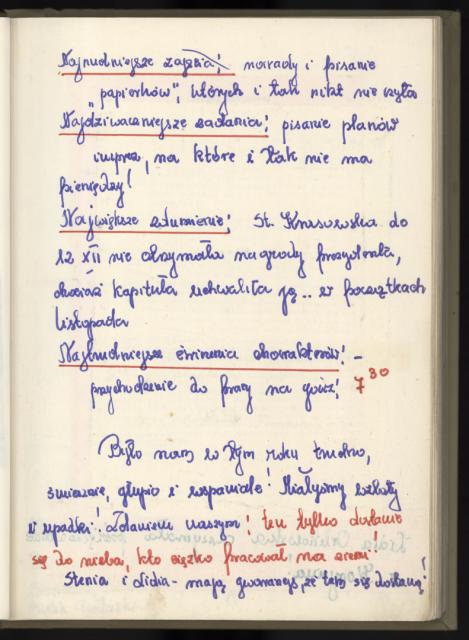 Najnudniejsze zajęcia! narady i pisanie
"papierków", których i tak nikt nie czyta
Najdziwaczniejsze zadania! pisanie planów
imprez, na które i tak nie ma
pieniędzy!
Największe zdumienie! St. Krasowska do
12 XII nie otrzymała nagrody prezydenta,
chociaż kapituła uchwaliła ją.. w początkach
listopada
Najtrudniejsze ćwiczenia charakterów! –
przychodzenie do pracy na godz! 7³⁰
Było nam w tym roku trudno,
śmiesznie, głupio i wspaniale! Miałyśmy wzloty
i upadki! Zdaniem naszym! ten tylko dostanie
się do nieba, kto ciężko pracował na ziemi!!
Stenia i Lidia - mają gwarancję, że tam się dostaną!